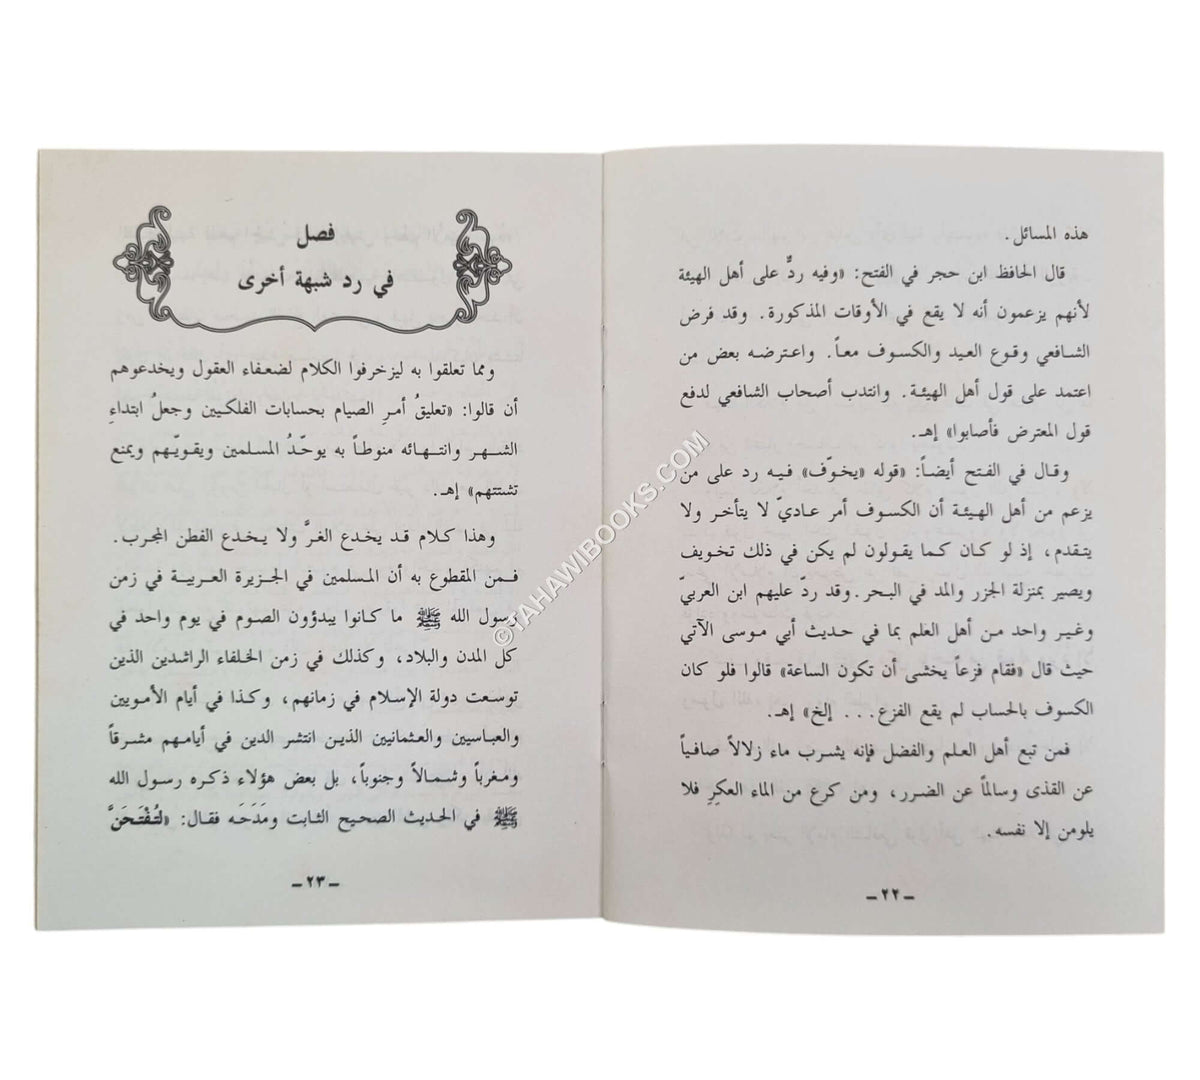 هذه المسائل.
قال الحافظ ابن حجر في الفتح: «وفيه ردٌّ على أهل الهيئة
لأنهم يزعمون أنه لا يقع في الأوقات المذكورة. وقد فرض
الشافعي وقوع العيد والكسوف معاً. واعترضه بعض من
اعتمد على قول أهل الهيئة. وانتدب أصحاب الشافعي لدفع
قول المعترض فأصابوا» إهـ.
وقال في الفتح أيضاً: «قوله «يخوّف» فيه رد على من
يزعم من أهل الهيئة أن الكسوف أمر عاديّ لا يتأخر ولا
يتقدم، إذ لو كان كما يقولون لم يكن في ذلك تخويف
ويصير بمنزلة الجزر والمد في البحر. وقد ردّ عليهم ابن العربيّ
وغير واحد من أهل العلم بما في حديث أبي موسى الآتي
حيث قال «فقام فزعاً يخشى أن تكون الساعة» قالوا فلو كان
الكسوف بالحساب لم يقع الفزع... إلخ» إهـ.
فمن تبع أهل العلم والفضل فإنه يشرب ماء زلالاً صافياً
عن القذى وسالماً عن الضرر، ومن كرع من الماء العكِرِ فلا
يلومن إلا نفسه.
ـ ٢٢ ـ
فصل
في رد شبهة أخرى
ومما تعلقوا به ليزخرفوا الكلام لضعفاء العقول ويخدعوهم
أن قالوا: «تعليقُ أمرِ الصيام بحسابات الفلكيين وجعلُ ابتداءِ
الشهر وانتهائه منوطاً به يوحّدُ المسلمين ويقويّهم ويمنع
تشتتهم» إهـ.
وهذا كلام قد يخدع الغرَّ ولا يخدع الفطن المجرب.
فمن المقطوع به أن المسلمين في الجزيرة العربية في زمن
رسول الله ﷺ ما كانوا يبدؤون الصوم في يوم واحد في
كل المدن والبلاد، وكذلك في زمن الخلفاء الراشدين الذين
توسعت دولة الإسلام في زمانهم، وكذا في أيام الأمويين
والعباسيين والعثمانيين الذين انتشر الدين في أيامهم مشرقاً
ومغرباً وشمالاً وجنوباً، بل بعض هؤلاء ذكره رسول الله
ﷺ في الحديث الصحيح الثابت ومَدَحَه فقال: «لتُفْتَحَنَّ
ـ ٢٣ ـ
©TAHAWIBOOKS.COM